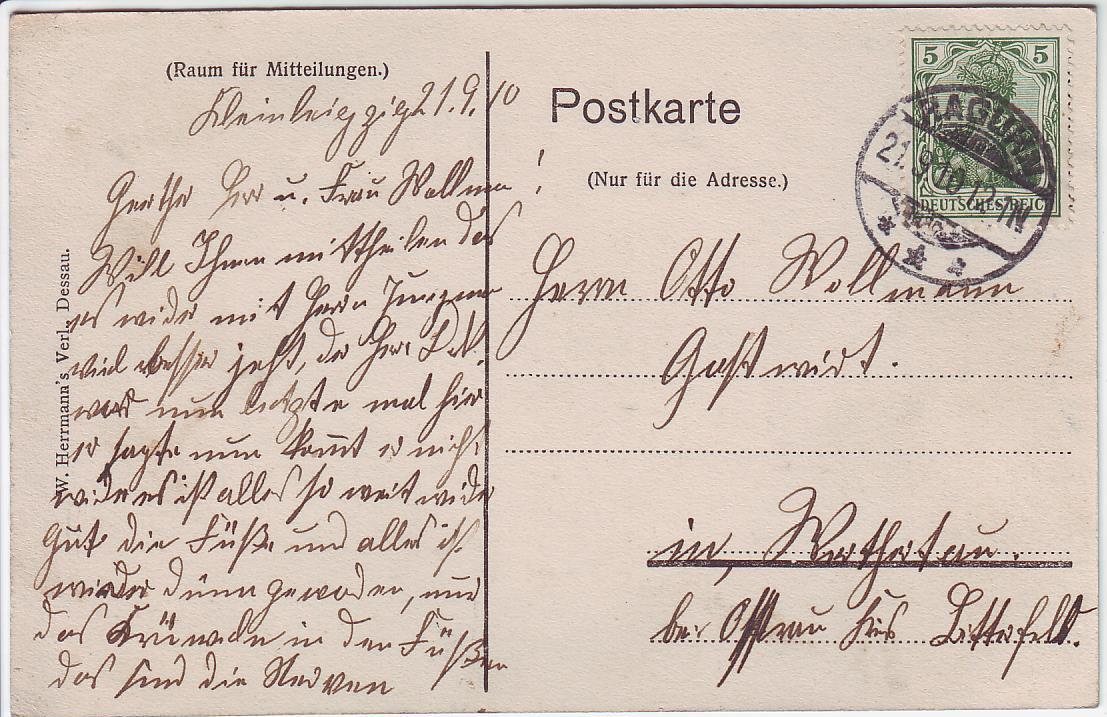 (Raum für Mitteilungen.)
Kleinleipzig 21.9.10
Geerther Herr u. Frau Wollman!
Will Ihnen mittheilen das
es wider mit Herrn Jungman
viel besser jeht, der Herr
war nun letzte mal hier
er sagte nun komt er nicht
wider es ist alles so weit wider
Gut die Füße und alles ist
wieder dünn geworden, und
das in den Füßen
das sind die Nerven
W. Herrmann's Verl., Dessau.
Postkarte
(Nur für die Adresse.)
5 5
DEUTSCHES REICH
RAGUHN
21.9.10.12-1N
Herrn Otto Wollmann
Gastwirt.
in,
bei Ostrau Kreis Bitterfeld.